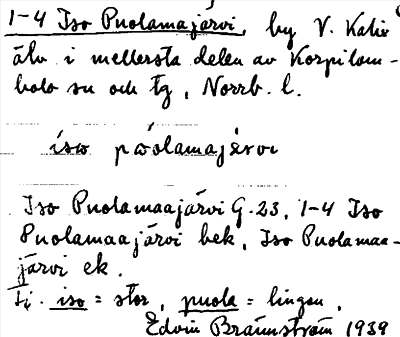 1-4 Iso Puolamajärvi, by V. Kalix
älv i mellersta delen av Korpilom-
bolo sn och tg, Norrb. l.
ísω pẃolamajęrvi
Iso Puolamaajärvi G. 23, 1-4 Iso
Puolamaajärvi bek, Iso Puolamaa-
järvi ek.
Fi. iso = stor, puola = lingon.
Edvin Brännström 1939